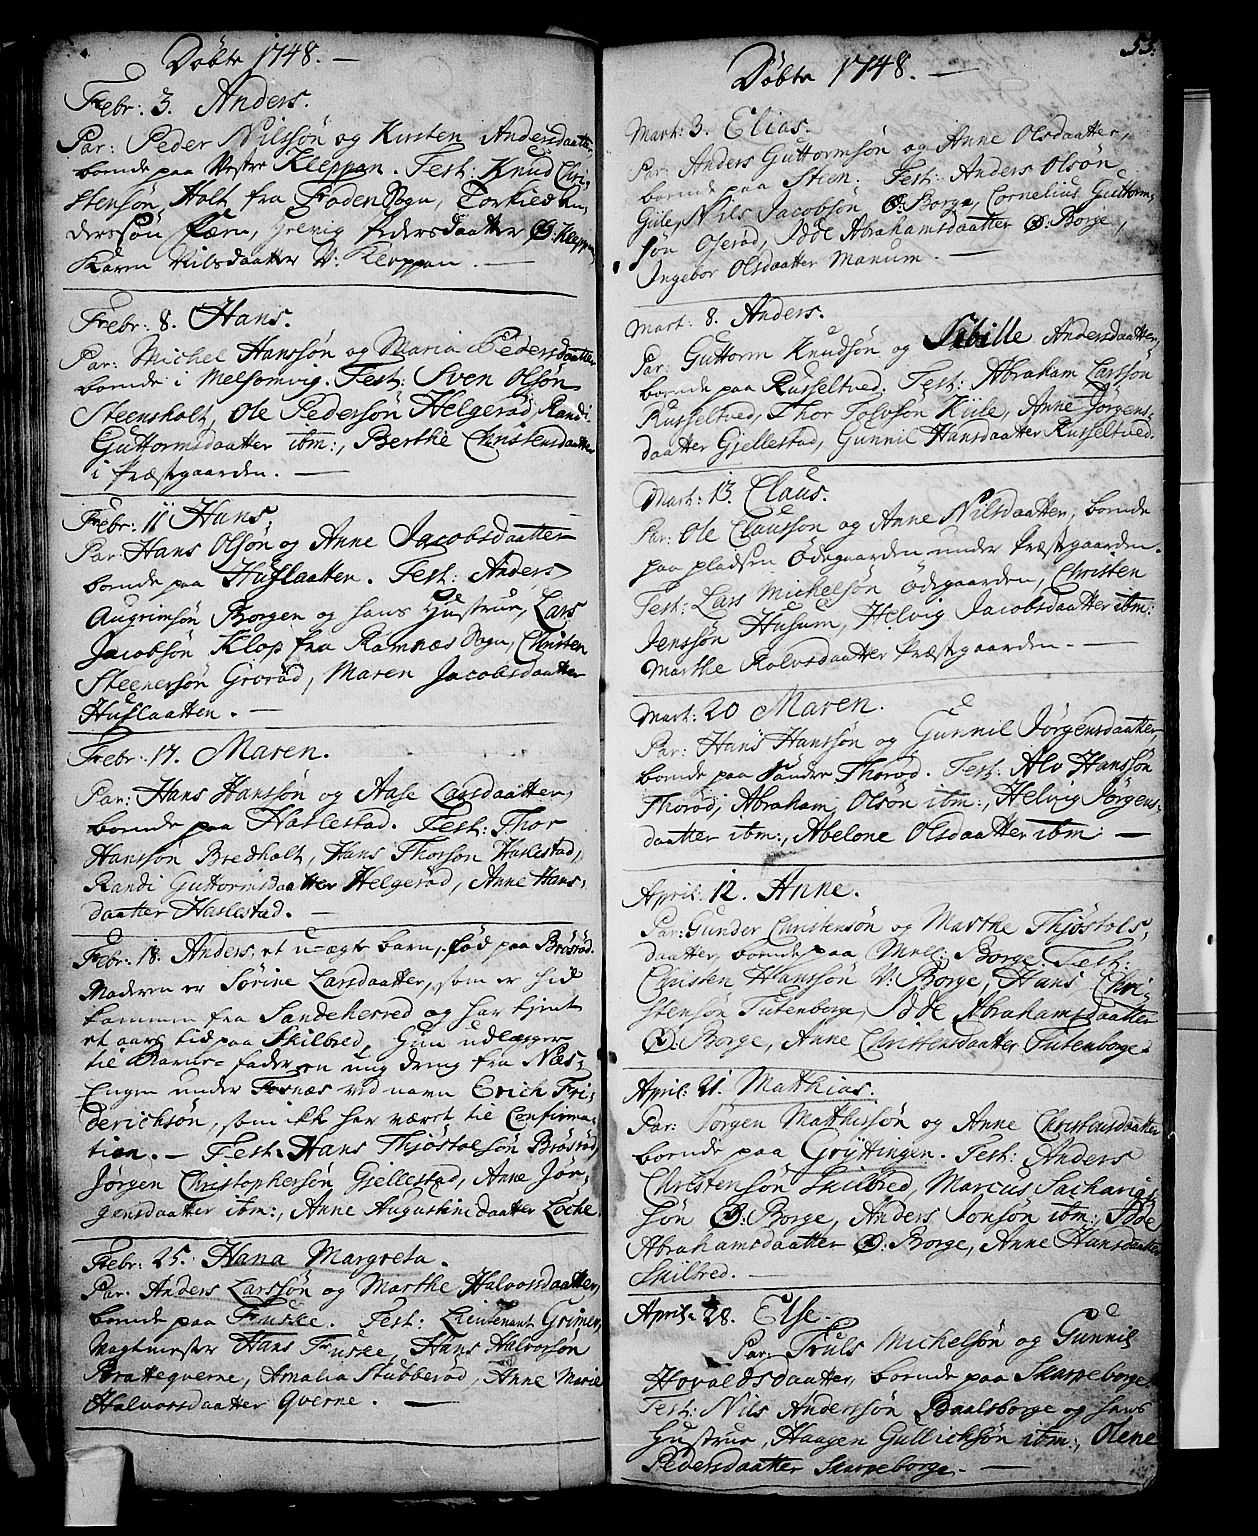 Döbte 1748. —
Febr: 3. Anders.
Par: Peder Nilssön og Kirsten Andersdaatter,
boende paa Vester Kleppan. Test: Knud Chri-
stensön Holt fra Sogn, Torkied An-
derssön Kiærn, Helvig Pedersdaatter Ø: Kleppan,
Karen Nilsdaatter V: Kleppan. —
Febr: 8. Hans.
Par: Michel Hanssön og Maria Pedersdaatter
boende i Melsomvig. Test: Sven Olsön
Steensholt, Ole Pedersön Helgeröd, Randi
Guttormsdaatter ibm:, Berthe Christensdaatter
i Præstgaarden. —
Febr: 11 Hans.
Par: Hans Olsön og Anne Jacobsdaatter
boende paa Huslaatten. Test: Anders
Augrimsön Borgen og hans Hustrue, Lars
Jacobsön Klop fra Ramnæs Sogn, Christen
Steenersön Groröd, Maren Jacobsdaatter
Huslaatten. —
Febr: 17. Maren.
Par: Hans Hansön og Aase Larsdaatter,
boende paa Haslestad. Test: Thor
Hanssön Bredholt, Hans Thorsön Haslestad,
Randi Guttormsdaatter Helgeröd, Anne Hans-
daatter Haslestad. —
Febr: 18. Anders, et u-ægte barn, föd paa Bröröd.
Moderen er Sörine Larsdaatter, som er hid
kommen fra Sandeherred og har tjent
et aars tid paa Skilbred, Hun udlægger
til Barne-fader en ung dreng fra Næs-
Engen under Fosnæs ved navn Erich Fri-
derichsön, som ikke har været til Confirma-
tion. — Test: Hans Thjöstolsön Bröröd,
Jörgen Christophersön Gjellestad, Anne Jör-
gensdaatter ibm:, Anne Augustini daatter Löche.
Febr: 25. Hana Margreta.
Par: Anders Larssön og Marthe Halvorsdaatter,
boende paa Fuske. Test: Lieutenant Grimer,
Vagtmester Hans Fuske, Hans Halvorsön
Brattequerne, Amalia Stubberöd, Anne Marie
Halvorsdaatter Querne. —
53.
Döbte 1748. —
Mart: 3. Elias.
Par: Anders Guttormsön og Anne Olsdaatter,
boende paa Steen. Test: Anders Olsön
Gile, Nils Jacobsön Ø: Borge, Cornelius Guttorm-
sön Oseröd, Idde Abrahamsdaatter Ø: Borge,
Ingebor Olsdaatter Manum. —
Mart: 8. Anders.
Par: Guttorm Knudsön og Sibille Andersdaatter,
boende paa Russeltved. Test: Abraham Larssön
Russeltved, Thor Tolvsön Kiile, Anne Jörgens-
daatter Gjellestad, Gunnil Hansdaatter Russeltved.
Mart: 13. Claus.
Par: Ole Claussön og Anne Nilsdaatter, boende
paa pladsen Ödegaarden under Præstgaarden.
Test: Lars Michelsön Ödegaarden, Christen
Jenssön Husum, Helvig Jacobsdaatter ibm:
Marthe Rolvsdaatter Præstgaarden. —
Mart: 20 Maren.
Par: Hans Hanssön og Gunnil Jörgensdaatter
boende paa Sunder Thoröd. Test: Alv Hanssön
Thoröd, Abraham Olsön ibm:, Helvig Jörgens-
daatter ibm:, Abelone Olsdaatter ibm: —
April: 12. Anne.
Par: Gunder Christensön og Marthe Thjöstols-
daatter, boende paa Mell: Borge. Test:
Christen Hanssön V: Borge, Hans Chri-
stensön Tutenborge, Idde Abrahamsdaatter
Ø: Borge, Anne Christensdaatter Tutenborge.
April: 21. Mathias.
Par: Jörgen Mathissön og Anne Christensdaatter
boende paa Gryttingen. Test: Anders
Christensön Skilbred, Marcus Sacharia-
sön Ø: Borge, Anders Jonsön ibm:, Idde
Abrahamsdaatter Ø: Borge, Anne Hansdaatter
Skilbred. —
April: 28. Else.
Par: Truls Michelsön og Gunnil
Hovaldsdaatter, boende paa Skarpeborge.
Test: Nils Anderssön Baalsborge og hans
Hustrue, Haagen Gullichsön ibm:, Olene
Pedersdaatter Skarpeborge. —